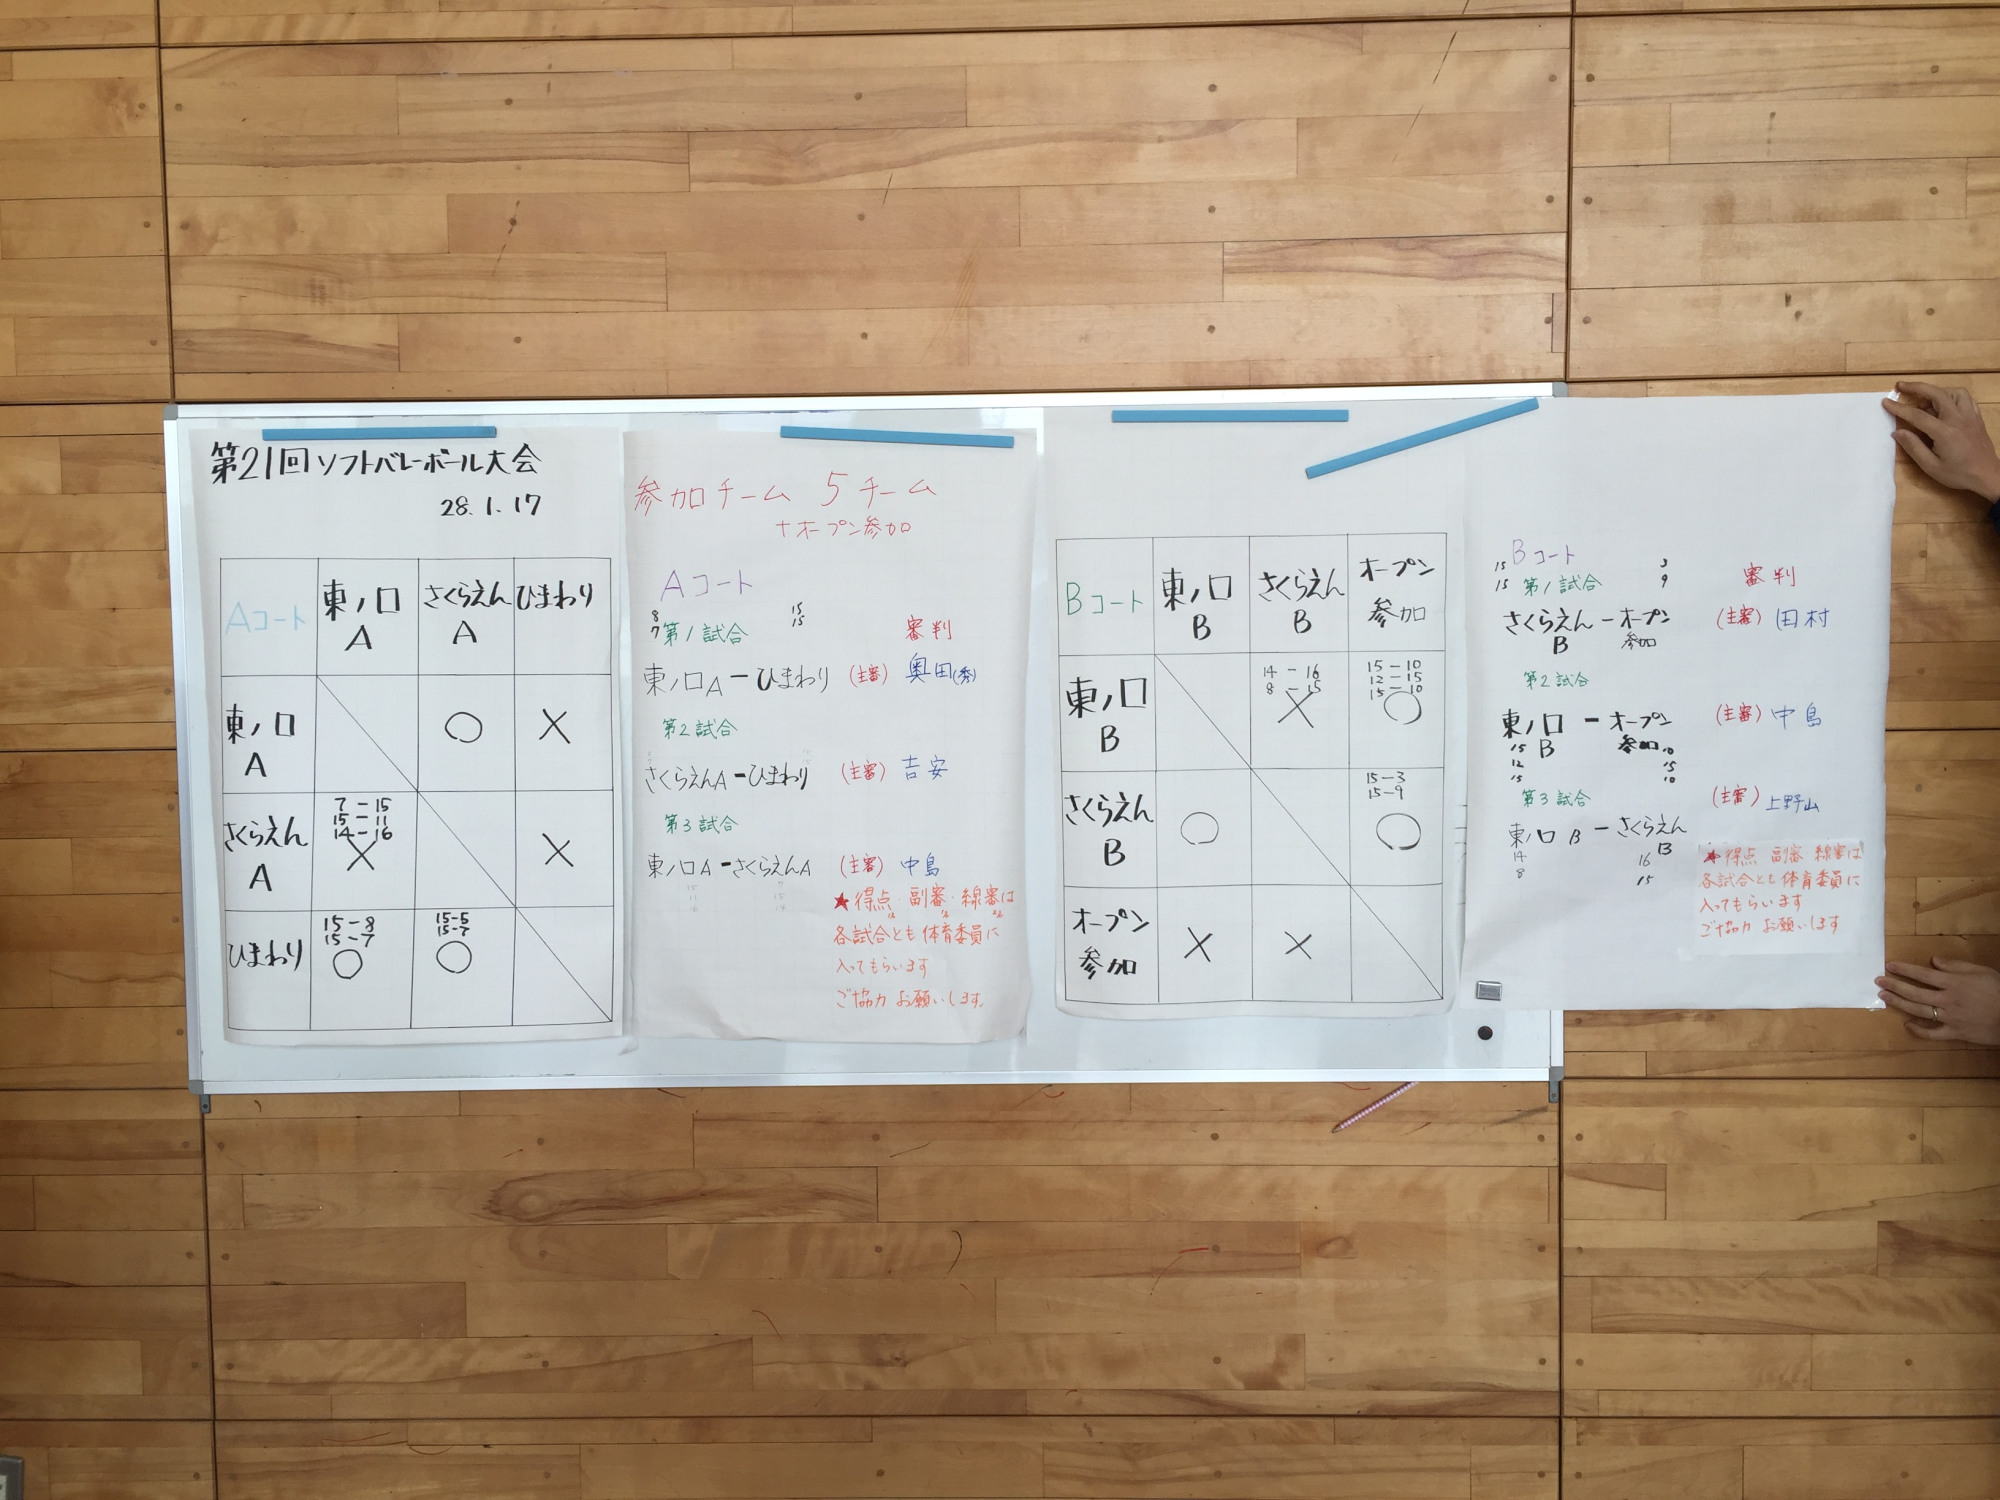 第21回ソフトバレーボール大会
28.1.17
Aコート
東ノ口
A
さくらえん
A
ひまわり
東ノ口
A
○
×
さくらえん
A
7-15
15-11
14-16
×
×
ひまわり
15-8
15-7
○
15-5
15-7
○
参加チーム 5チーム
+オープン参加
Aコート
8
7
15
15
第1試合
審判
東ノ口A-ひまわり (主審) 奥田(秀)
第2試合
さくらえんA-ひまわり (主審) 吉安
第3試合
東ノ口A-さくらえんA (主審) 中島
★得点・副審・線審は
各試合とも体育委員に
入ってもらいます
ご協力お願いします。
Bコート
東ノ口
B
さくらえん
B
オープン
参加
東ノ口
B
14-16
8-15
×
15-10
12-15
15-10
○
さくらえん
B
○
15-3
15-9
○
オープン
参加
×
×
Bコート
15
15
3
9
第1試合
審判
さくらえん-オープン (主審) 田村
B 参加
第2試合
東ノ口-オープン (主審) 中島
B 参加
15 10
12 15
15 10
第3試合
(主審) 上野山
東ノ口B-さくらえん
B
14 16
8 15
★得点 副審 線審は
各試合とも体育委員に
入ってもらいます
ご協力お願いします